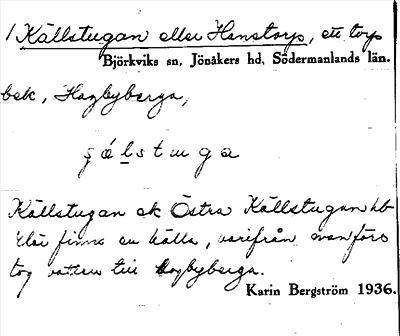 1 Källstugan eller Hanstorp, ett torp
Björkviks sn, Jönåkers hd, Södermanlands län.
bek, Hagbyberga,
s á l s t u g a
Källstugan ek Östra Källstugan hb
Här finns en källa, varifrån man förr
tog vatten till Hagbyberga.
Karin Bergström 1936.